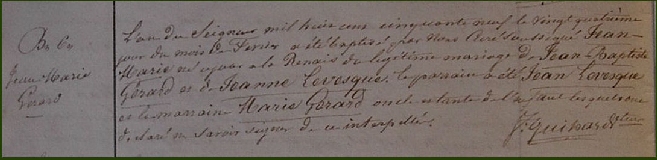 B. 6.
Jean Marie
Gérard
L'an du Seigneur mil huit cent cinquante neuf le vingt quatrième
jour du mois de Fevrier a été baptisé par Nous Curé soussigné Jean-
Marie né ce jour à la Benais du légitime mariage de Jean Baptiste
Gérard et de Jeanne Levesque. Le parain a été Jean Levesque
et la marraine Marie Gérard oncle et tante de l'enfant lesquels ont
déclaré ne savoir signer de ce interpellés.
J. Guihard